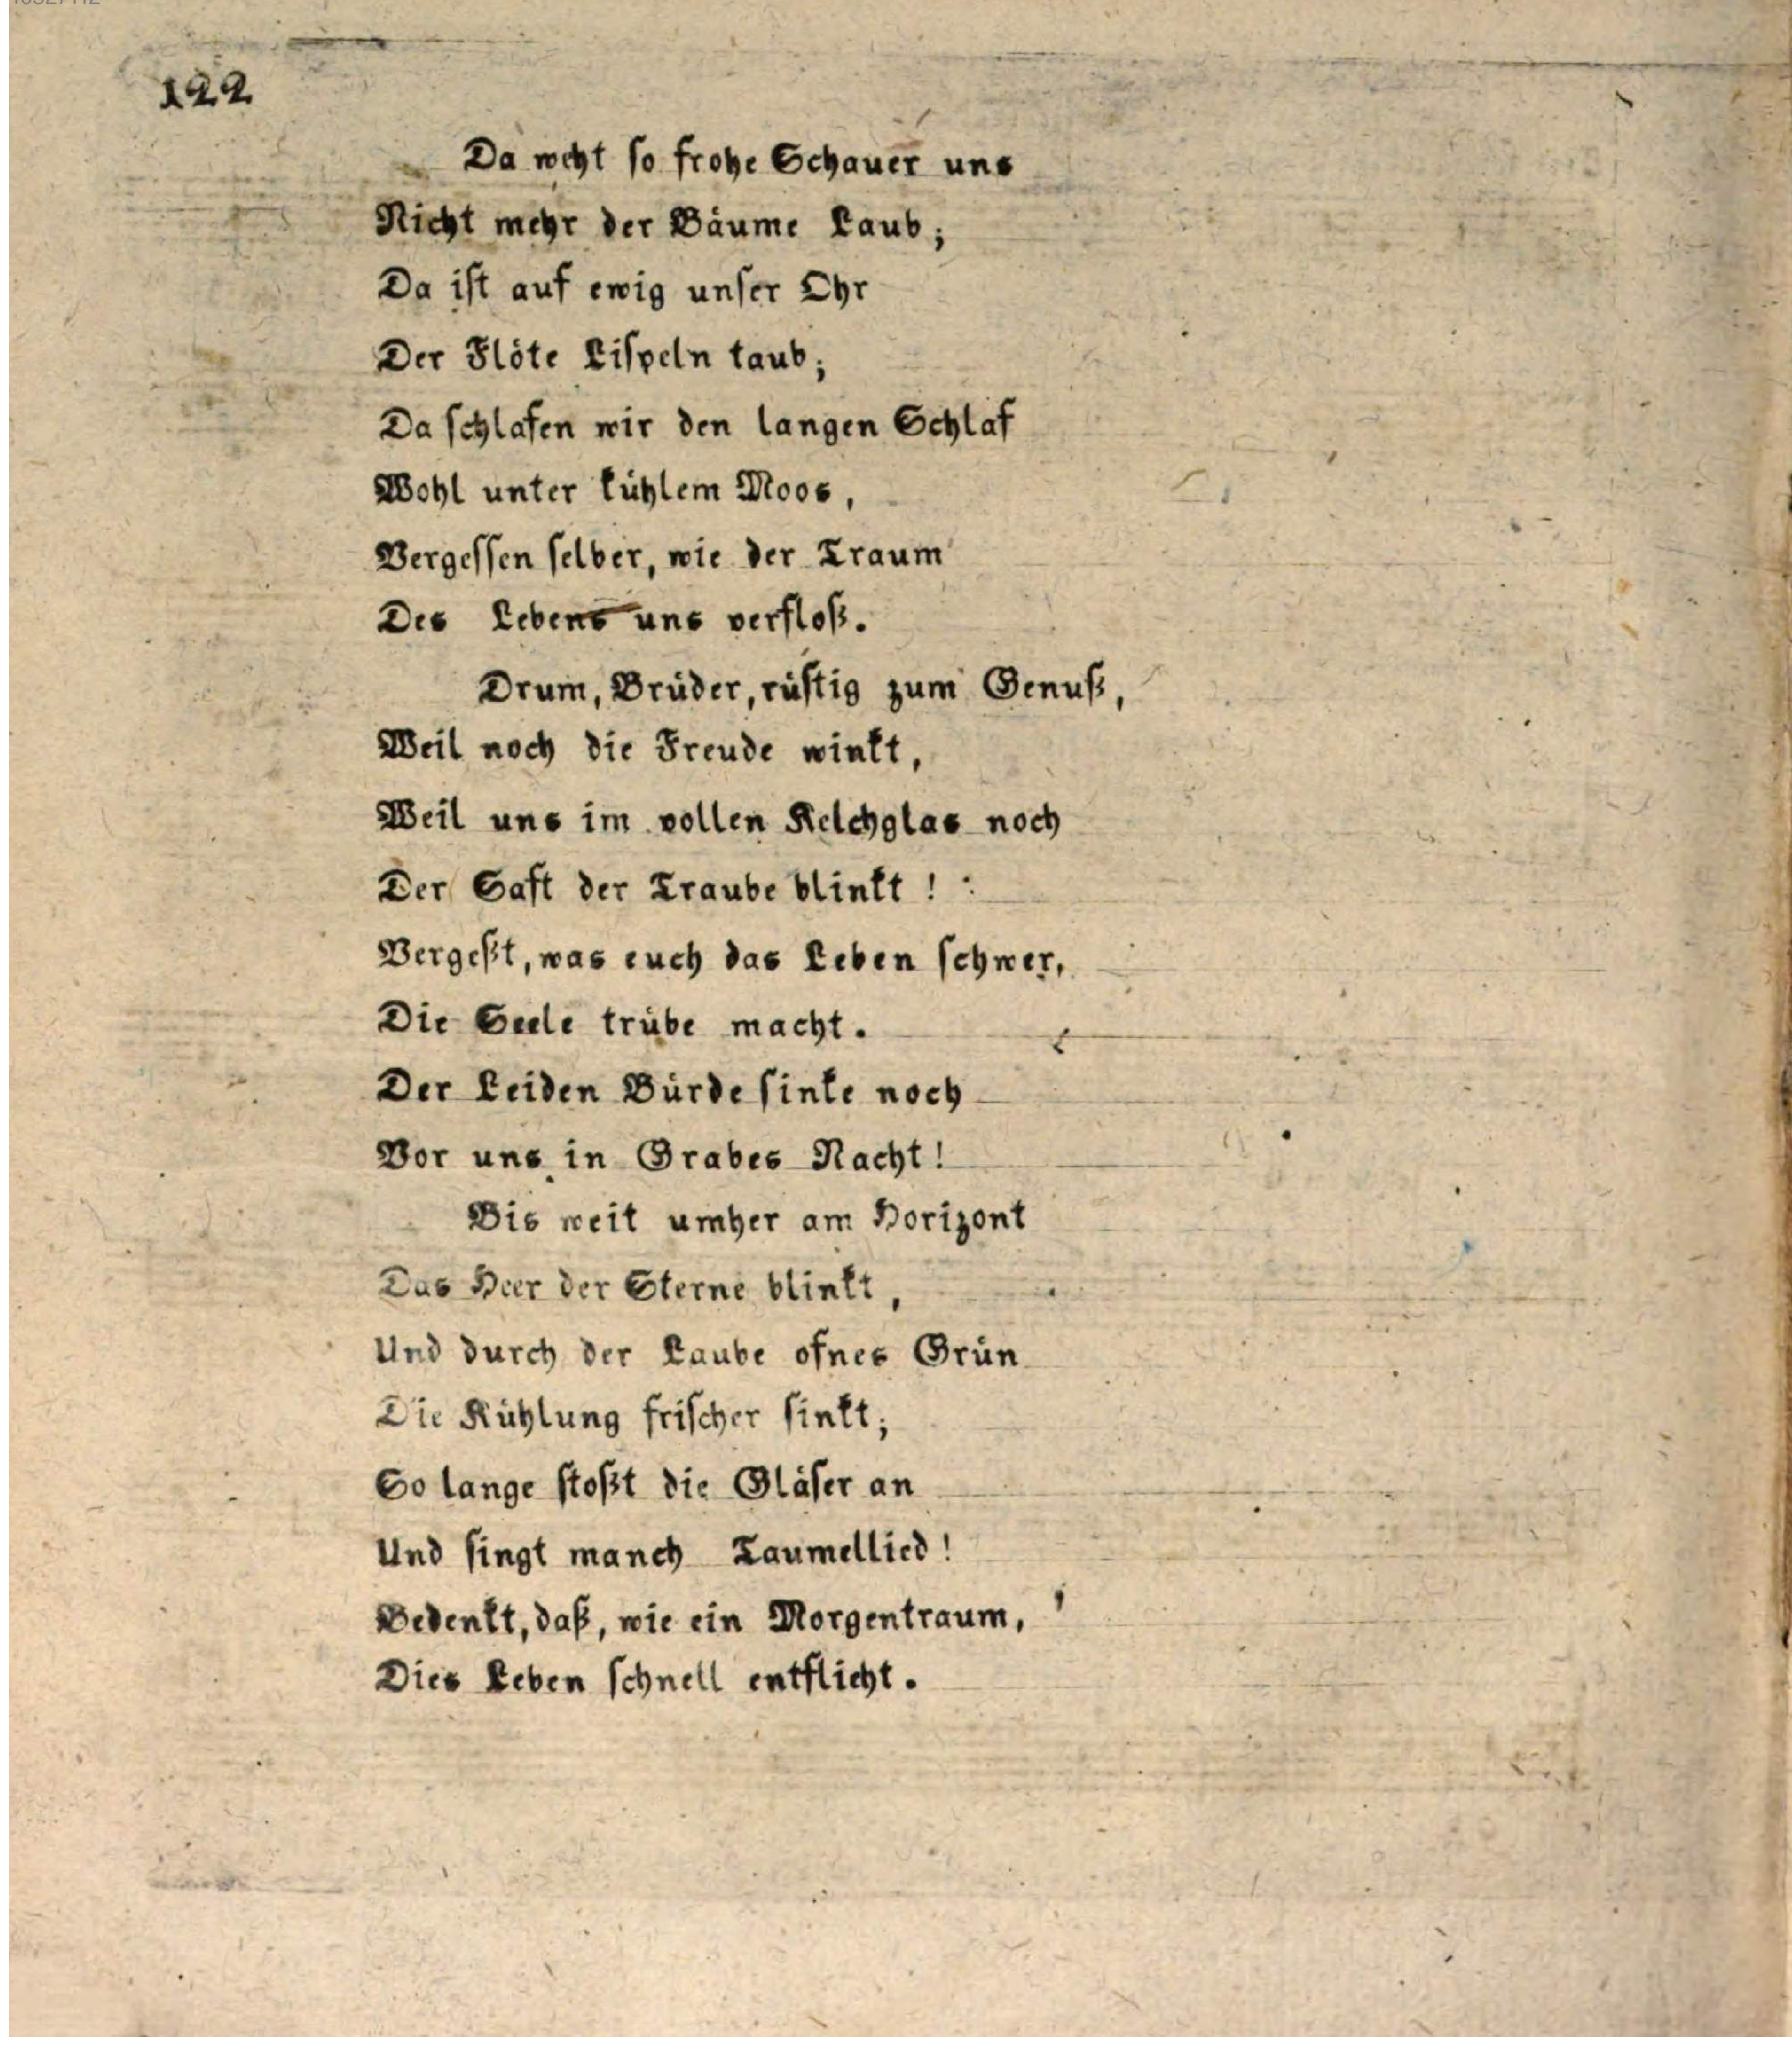 122
Da weht so frohe Schauer uns
Nicht mehr der Bäume Laub;
Da iſt auf ewig unſer Ohr
Der Flöte Liſpeln taub;
Da ſchlafen wir den langen Schlaf
Wohl unter kühlem Moos,
Vergeſſen ſelber, wie der Traum
Des Lebens uns verfloß.
Drum, Brüder, rüſtig zum Genuß,
Weil noch die Freude winkt,
Weil uns im vollen Kelchglas noch
Der Saft der Traube blinkt!
Vergeßt, was euch das Leben ſchwer,
Die Seele trübe macht.
Der Leiden Bürde ſinke noch
Vor uns in Grabes Nacht!
Bis weit umher am Horizont
Das Heer der Sterne blinkt,
Und durch der Laube ofnes Grün
Die Kühlung friſcher ſinkt;
So lange ſtoßt die Gläſer an
Und ſingt manch Taumellied!
Bedenkt, daß, wie ein Morgentraum,
Dies Leben ſchnell entflieht.